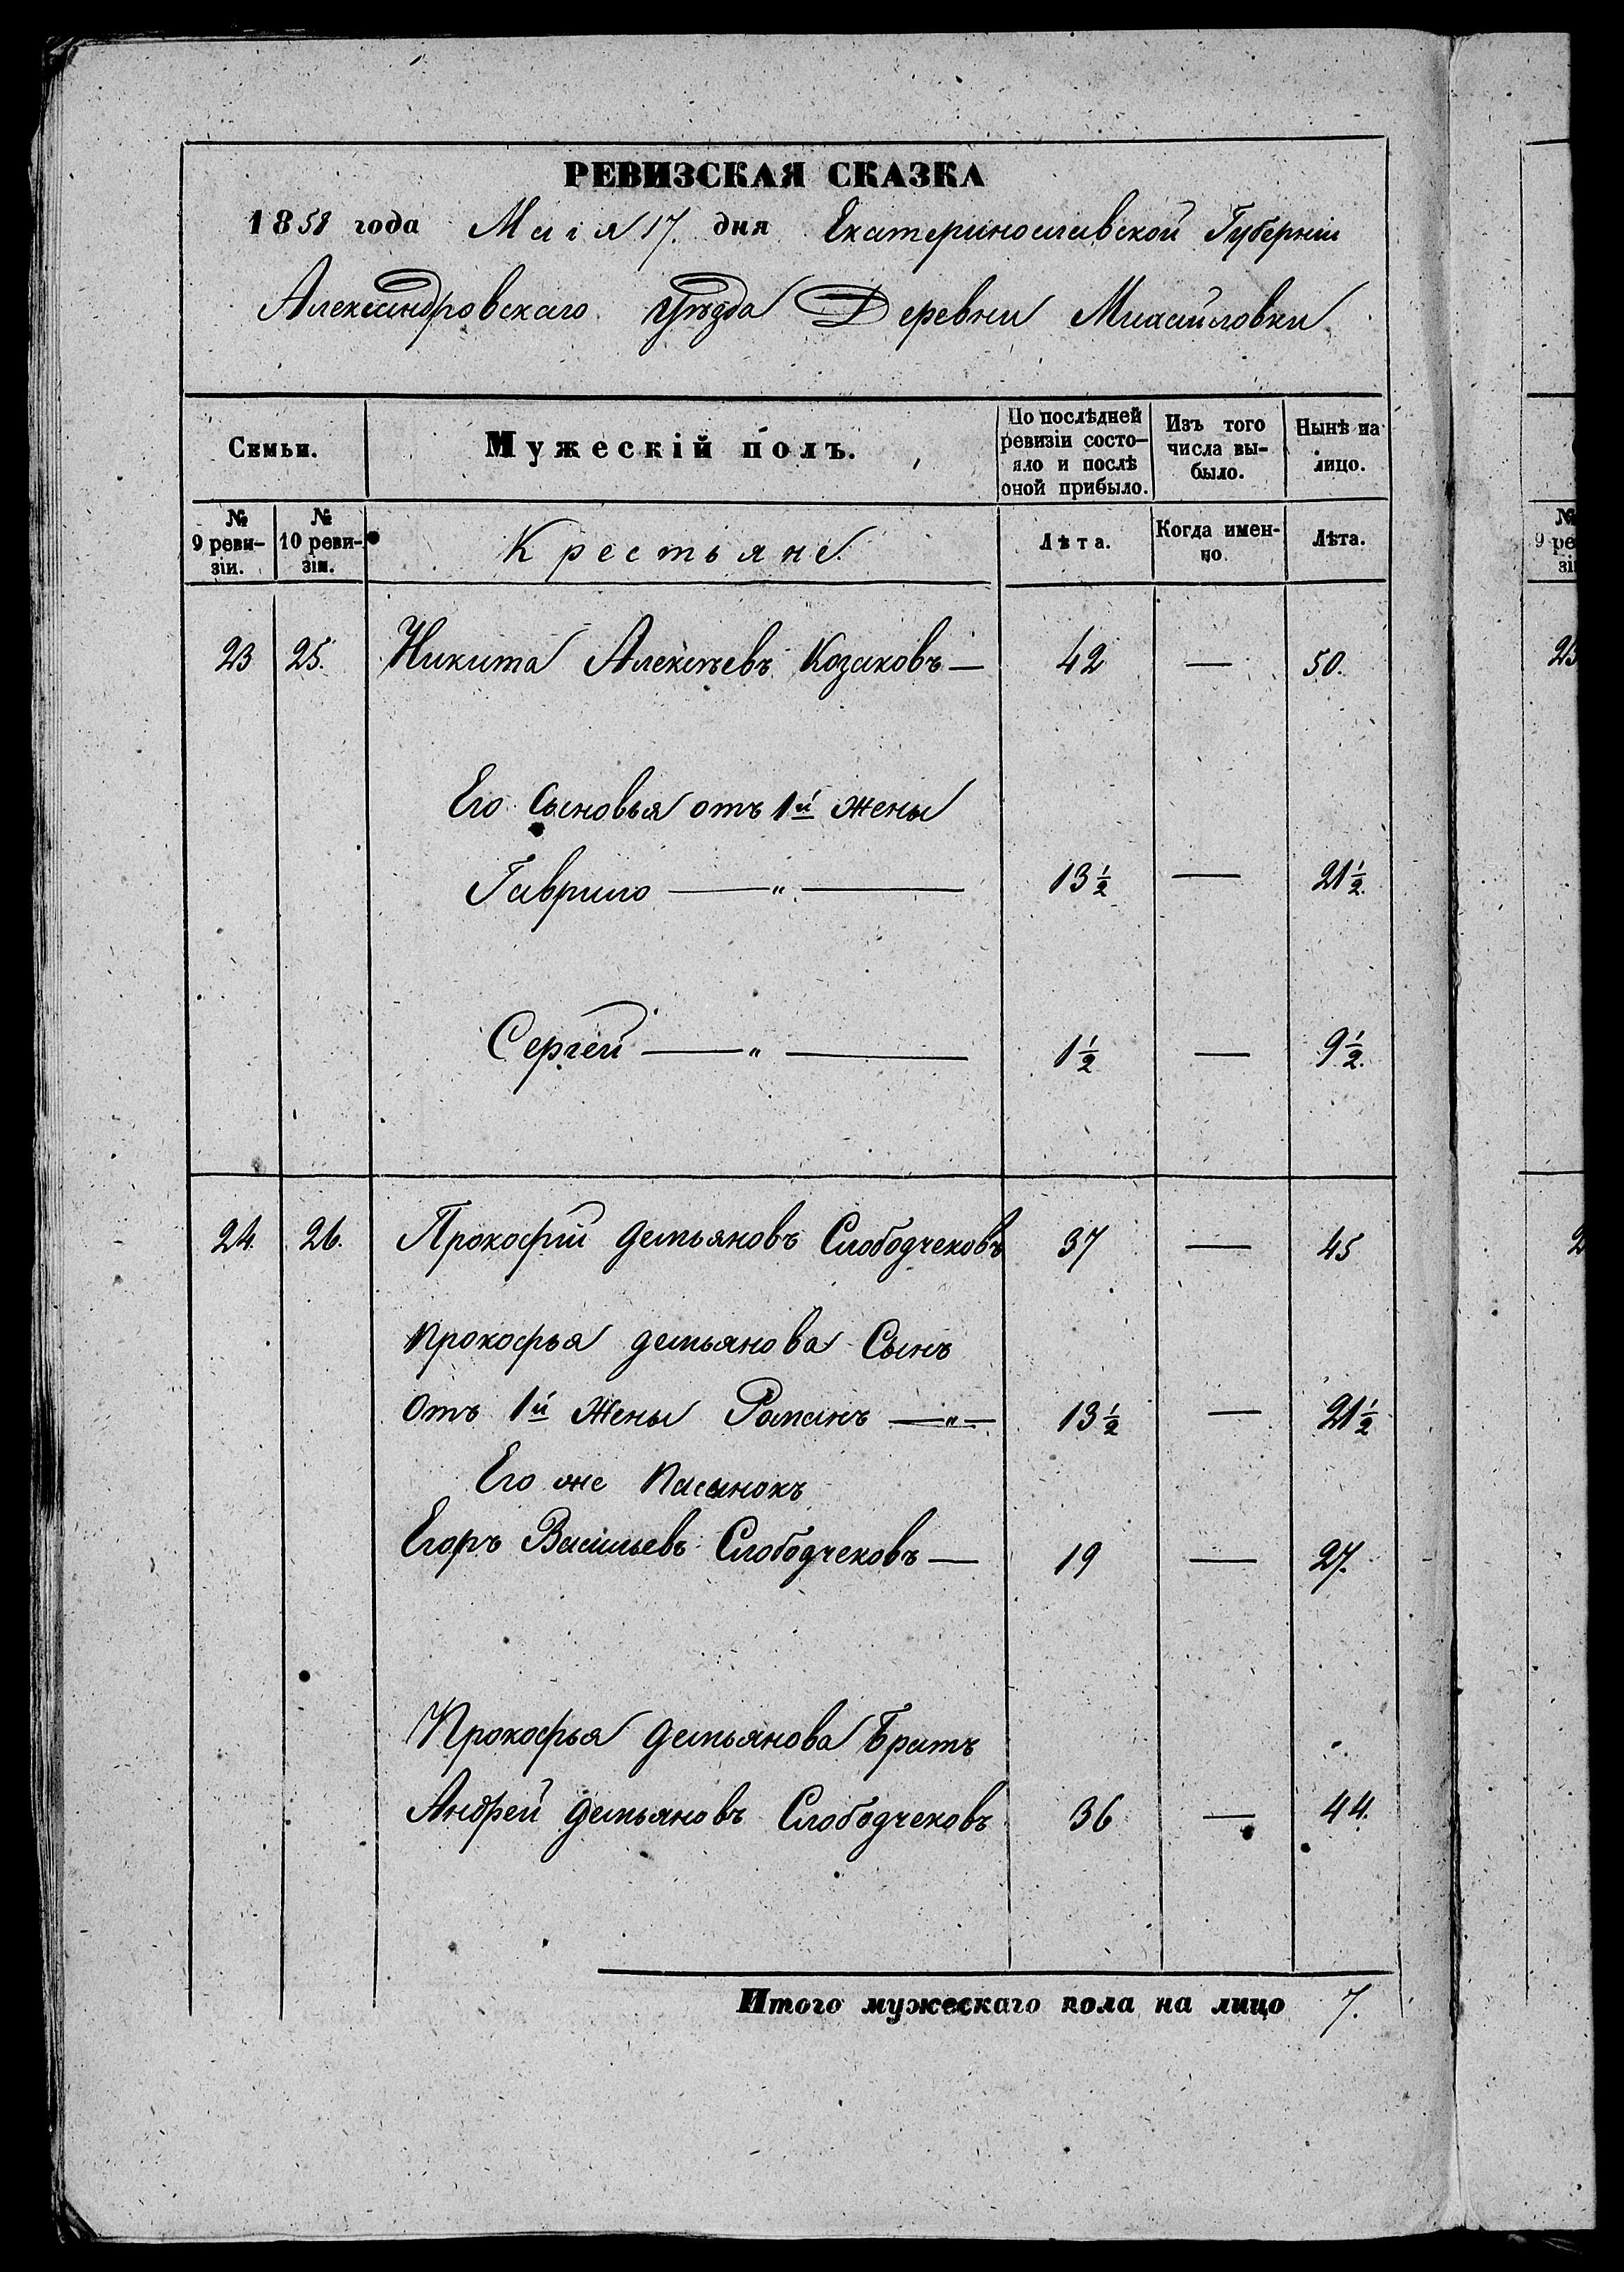 РЕВИЗСКАЯ СКАЗКА
1858 года Маія 17. дня Екатеринославской Губерніи
Александровскаго Уѣзда Деревни Михайловки
Семьи. Мужескій полъ. По послѣдней ревизіи состояло и послѣ оной прибыло. Изъ того числа выбыло. Нынѣ на лицо.
№ 9 ревизіи. № 10 ревизіи. Крестьяне Лѣта. Когда именно. Лѣта.
23 25. Никита Алексѣевъ Козаковъ — 42 — 50.
Его Сыновья отъ 1й жены
Гаврило — " — 13 ½ — 21 ½.
Сергѣй — " — 1 ½ — 9 ½.
24. 26. Прокофій демьяновъ Слободчековъ 37 — 45
Прокофья демьянова Сынъ
отъ 1й жены Романъ — " — 13 ½ — 21 ½
Его же пасынокъ
Егоръ Васильевъ Слободчековъ — 19 — 27.
Прокофья демьянова Братъ
Андрей демьяновъ Слободчековъ 36 — 44.
Итого мужескаго пола на лицо 7.
№
9 ре
зі